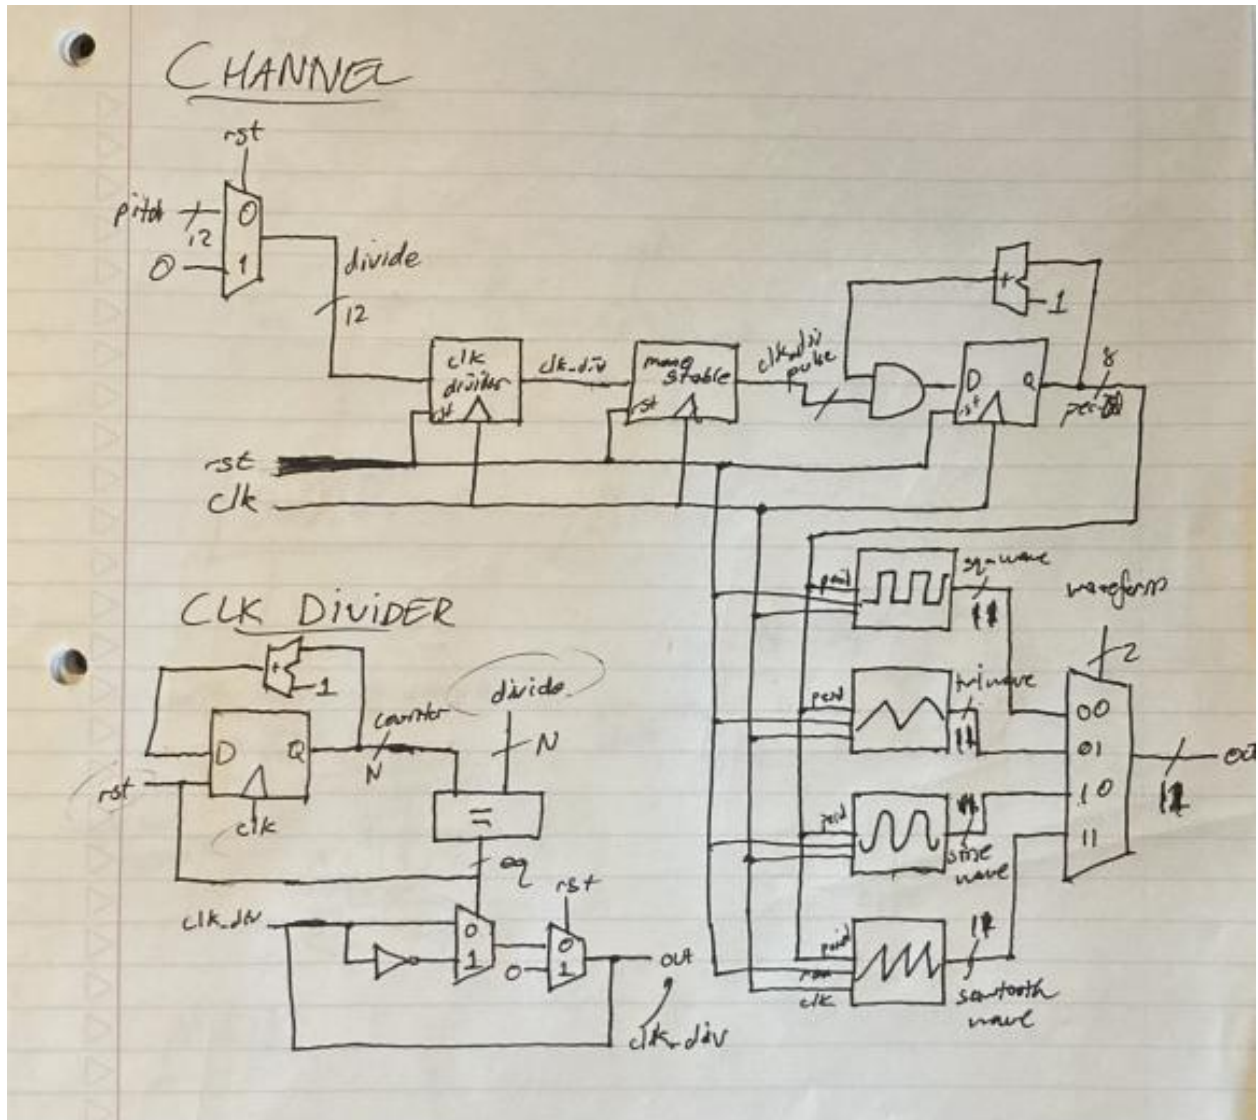 CHANNEL
rst
pitch 12
0
0
1
divide
12
clk divider
rst
clk_div
mono stable
rst
clk_div pulse
+
1
D Q
rst
8
rst
clk
CLK DIVIDER
+
1
D Q
rst
clk
counter
N
divide
N
=
eq
clk_div
0
1
rst
0
0
1
out
clk_div
period
sqr wave
11
period
tri wave
11
period
sine wave
11
period
clk
sawtooth wave
waveform
2
00
01
10
11
out